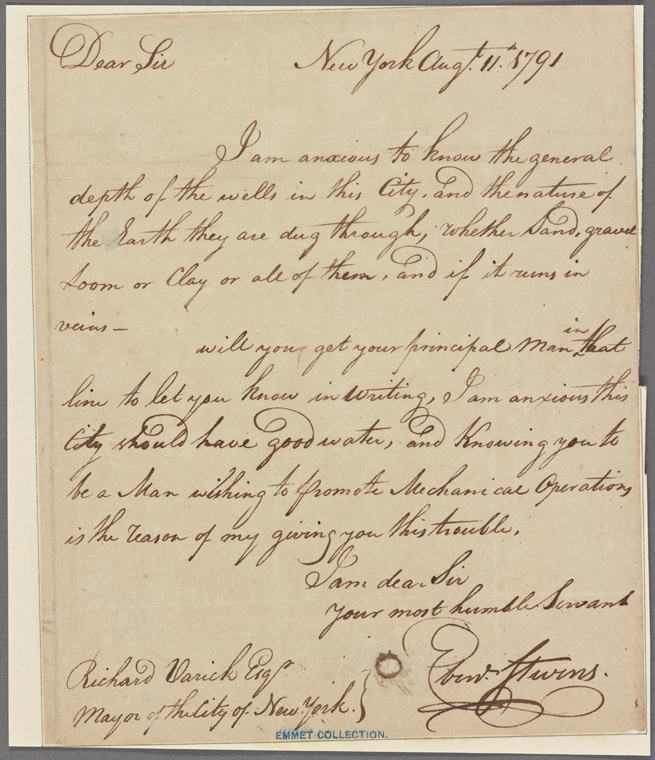 Dear Sir New York Augt. 11th. 1791
I am anxious to know the general
depth of the wells in this City, and the nature of
the Earth they are dug through, whether Sand, gravel
Loom or Clay or all of them, and if it runs in
veins –
will you get your principal Man in that
line to let you know in writing, I am anxious this
City should have good water, and Knowing you to
be a Man wishing to promote Mechanical Operations
is the reason of my giving you this trouble.
I am dear Sir
Your most humble Servant
Ebenr. Stevens.
Richard Varick Esqr
Mayor of the City of New York.
EMMET COLLECTION.